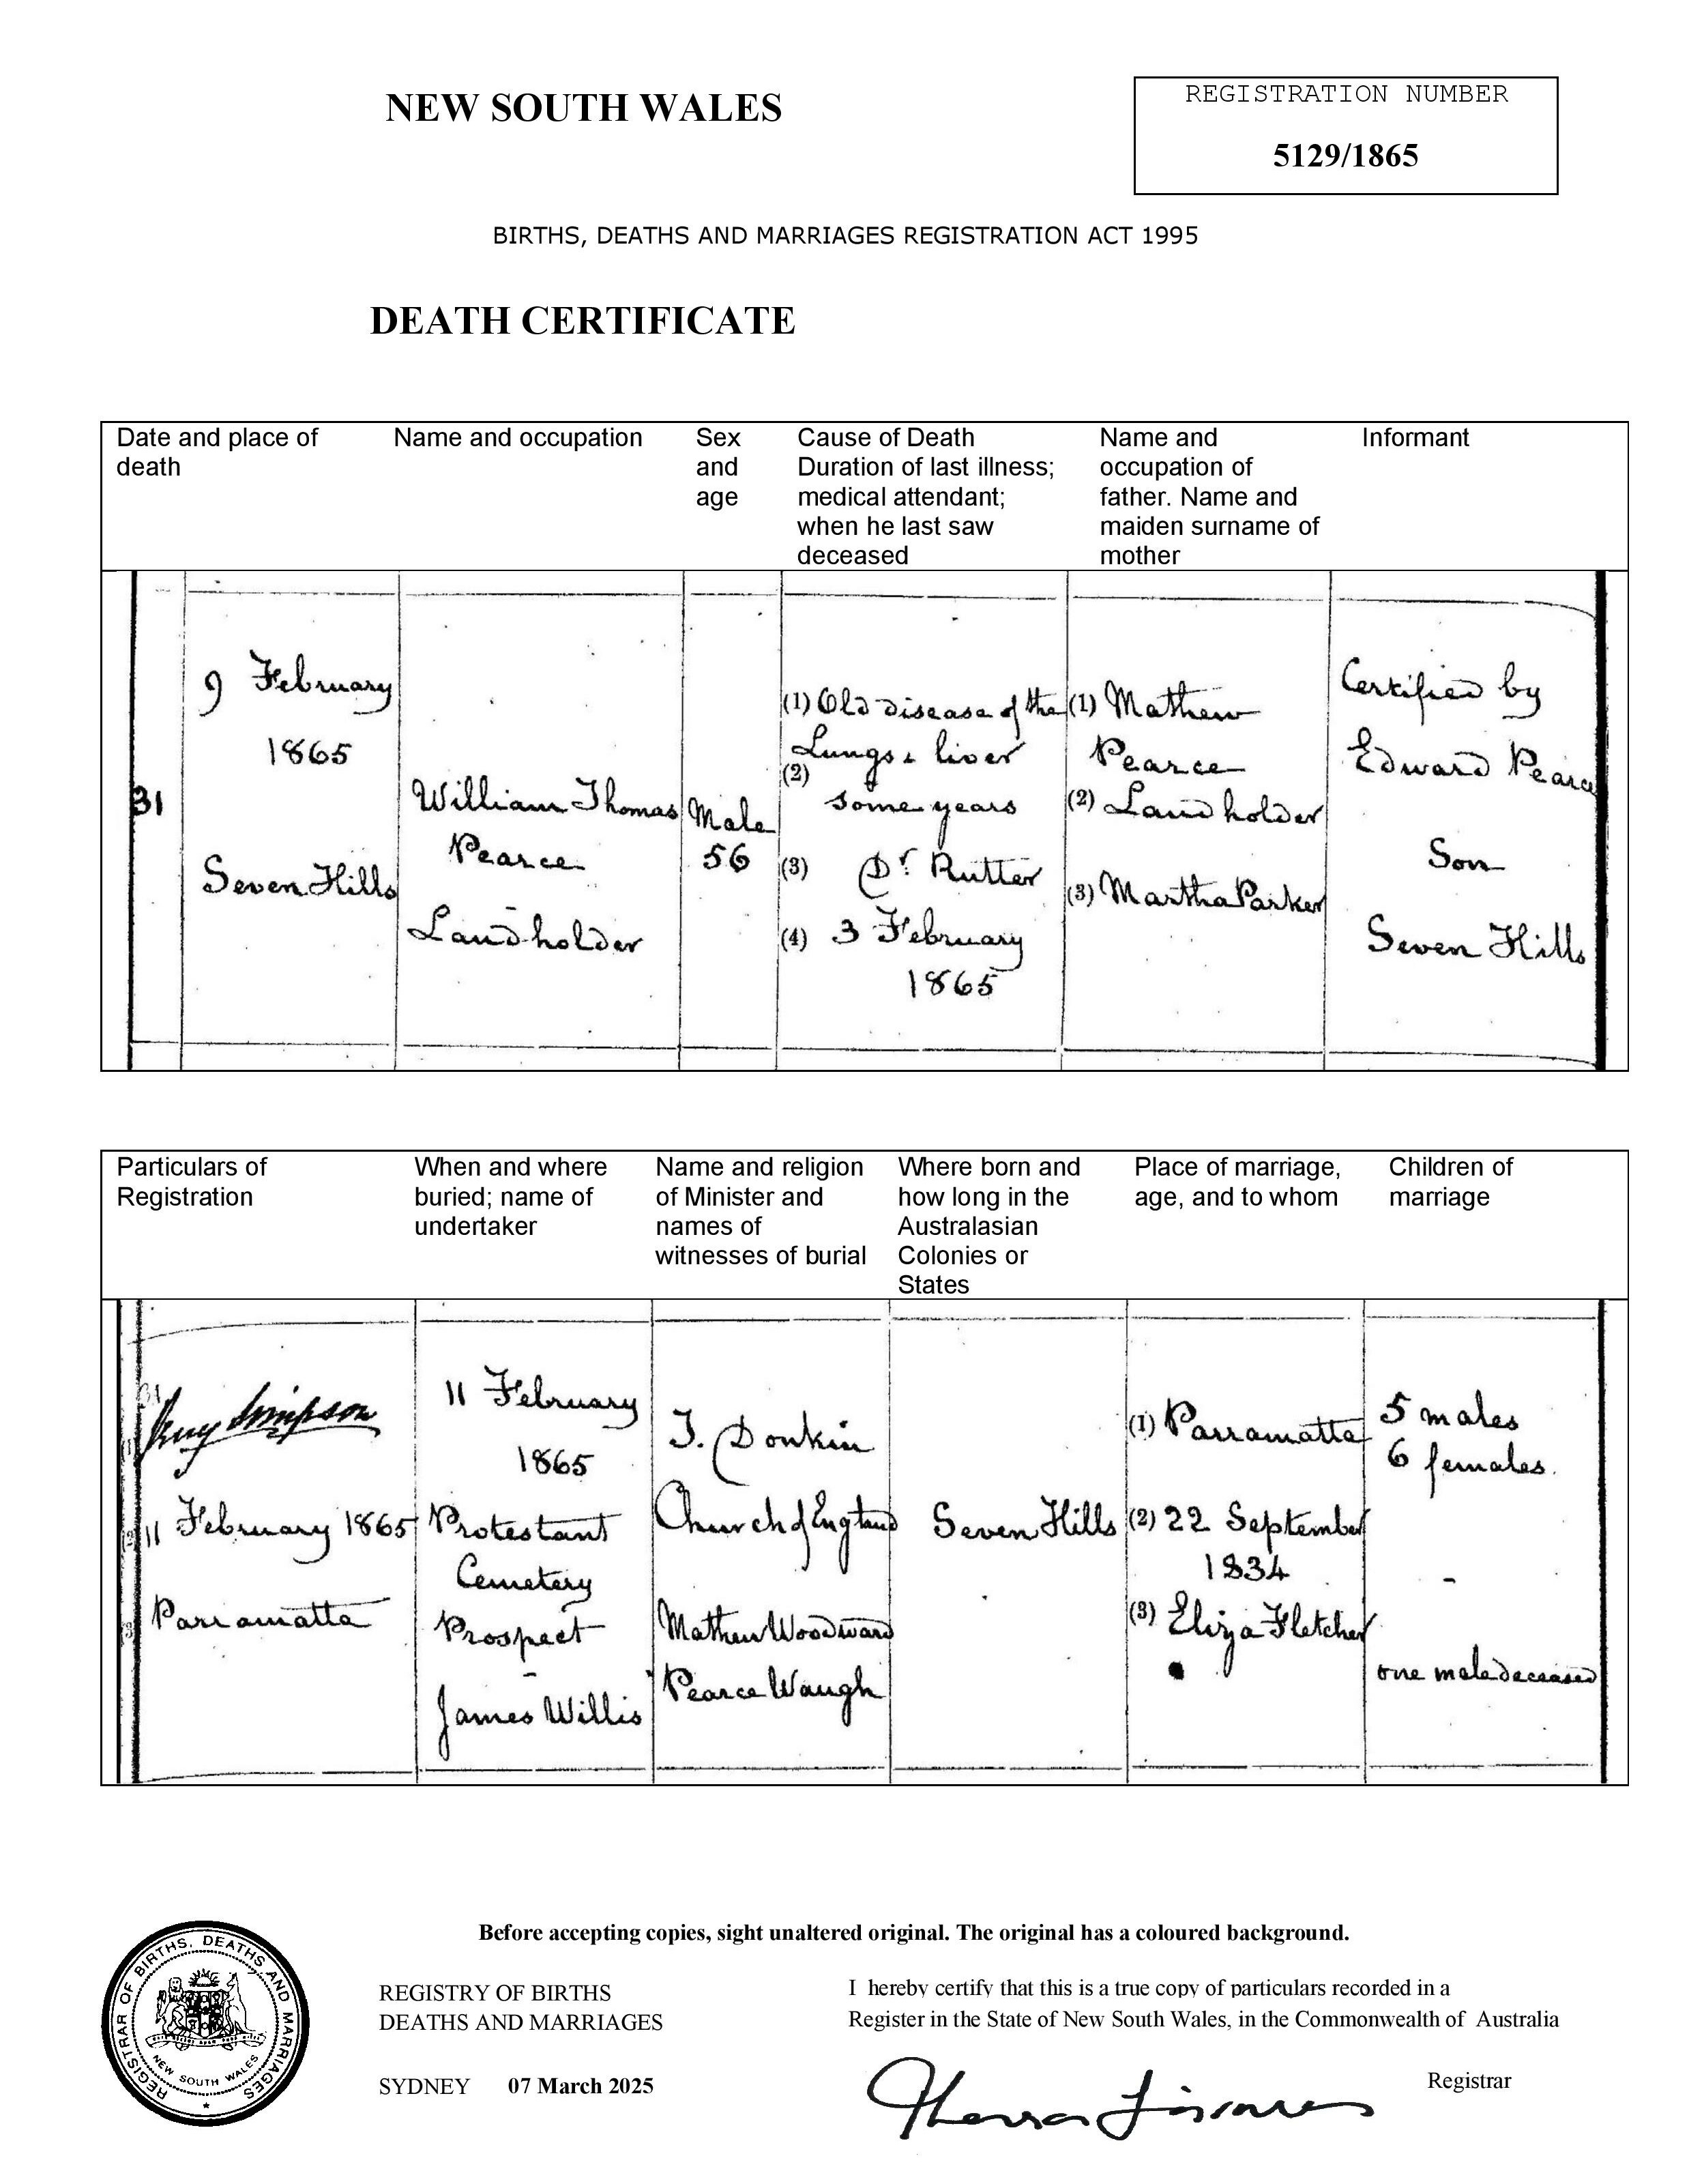 NEW SOUTH WALES
REGISTRATION NUMBER
5129/1865
BIRTHS, DEATHS AND MARRIAGES REGISTRATION ACT 1995
DEATH CERTIFICATE
Date and place of death
Name and occupation
Sex and age
Cause of Death
Duration of last illness;
medical attendant;
when he last saw
deceased
Name and
occupation of
father. Name and
maiden surname of
mother
Informant
31
9 February
1865
Seven Hills
William Thomas
Pearce
Landholder
Male
56
(1) Old disease of the
Lungs & liver
(2)
some years
(3) Dr. Rutter
(4) 3 February
1865
(1) Mathew
Pearce
(2) Landholder
(3) Martha Parker
Certified by
Edward Pearce
Son
Seven Hills
Particulars of
Registration
When and where
buried; name of
undertaker
Name and religion
of Minister and
names of
witnesses of burial
Where born and
how long in the
Australasian
Colonies or
States
Place of marriage,
age, and to whom
Children of
marriage
Simpson
11 February 1865
Parramatta
11 February
1865
Protestant
Cemetery
Prospect
James Willis
T. Donkin
Church of England
Mathew Woodward
Pearce Waugh
Seven Hills
(1) Parramatta
(2) 22 September
1834
(3) Eliza Fletcher
5 males
6 females.
one male deceased
Before accepting copies, sight unaltered original. The original has a coloured background.
REGISTRAR OF BIRTHS, DEATHS AND MARRIAGES
NEW SOUTH WALES
REGISTRY OF BIRTHS
DEATHS AND MARRIAGES
SYDNEY 07 March 2025
I hereby certify that this is a true copy of particulars recorded in a
Register in the State of New South Wales, in the Commonwealth of Australia
Registrar